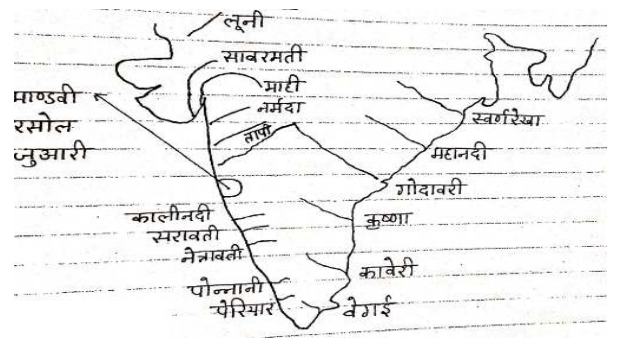 लूनी
साबरमती
माही
नर्मदा
तापी
माण्डवी
रसोल
जुआरी
स्वर्णरेखा
महानदी
गोदावरी
कृष्णा
कालीनदी
सरावती
नेत्रावती
कावेरी
पोन्नानी
पेरियार
वेगई